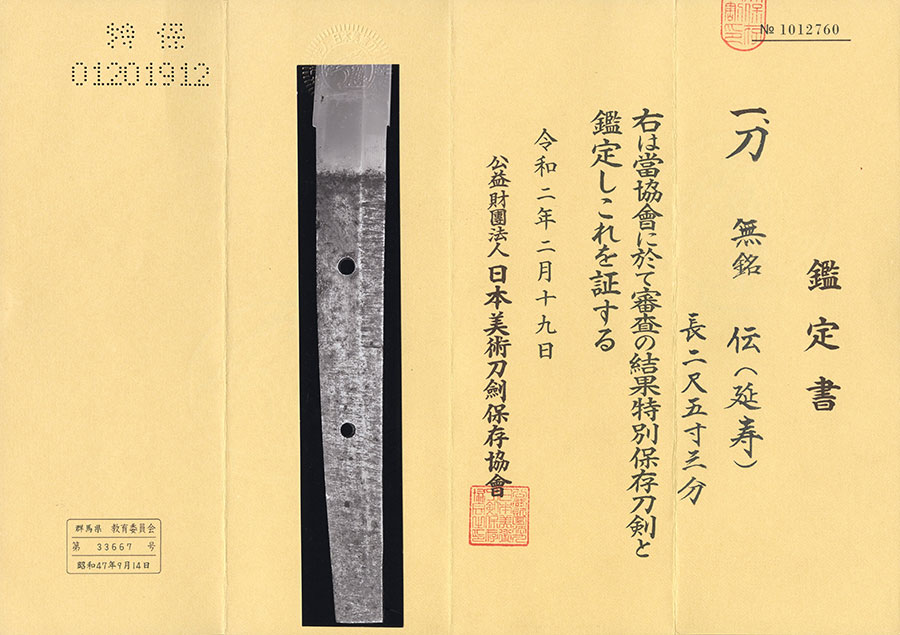 № 1012760
鑑定書
一、刀 無銘 伝(延寿)
長二尺五寸三分
右は當協會に於て審査の結果特別保存刀剣と
鑑定しこれを証する
令和二年二月十九日
公益財團法人 日本美術刀劍保存協會
特保
01201912
群馬県 教育委員会
第 33667 号
昭和47年9月14日